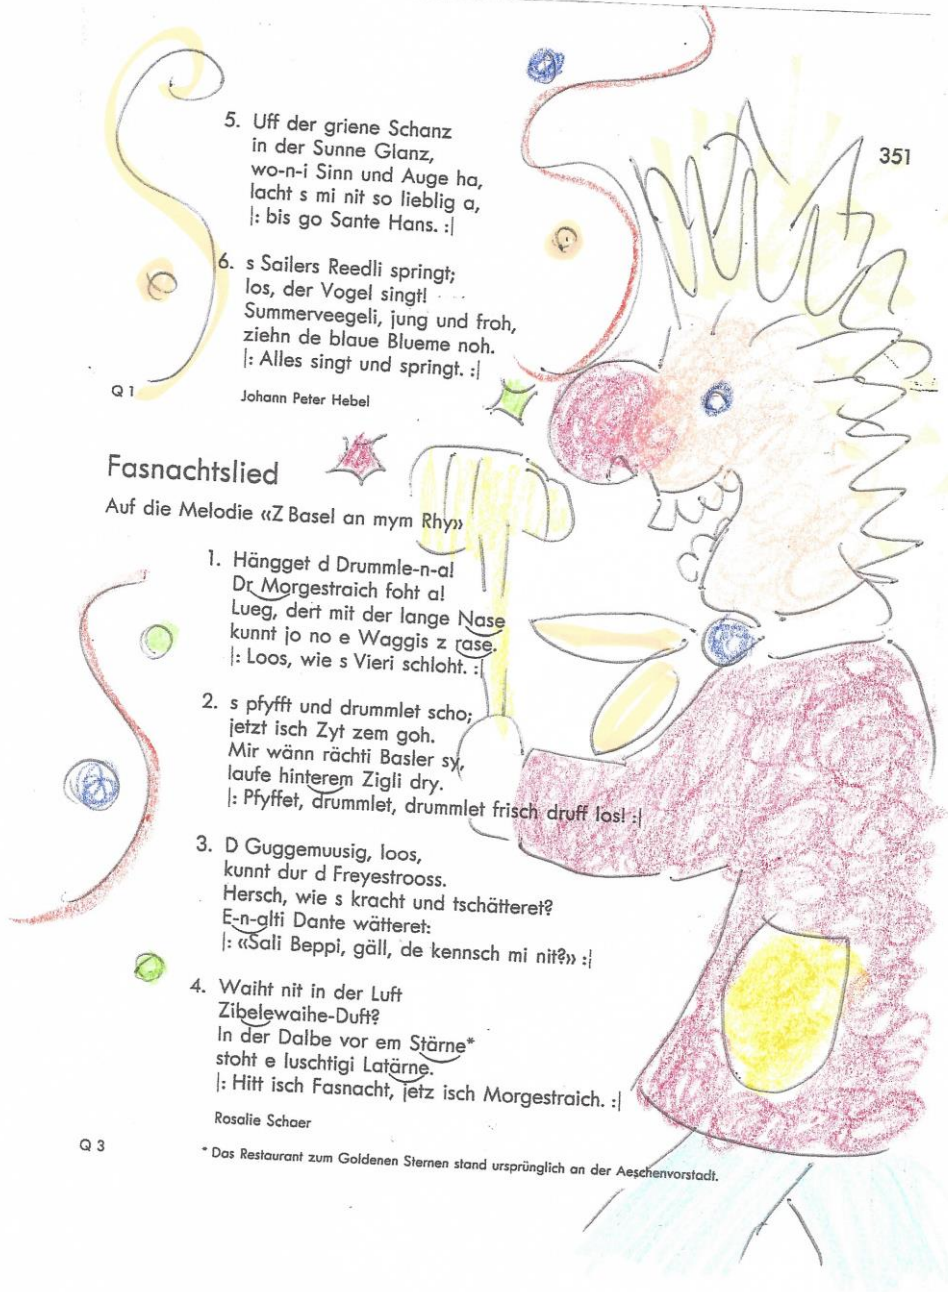 351
5. Uff der griene Schanz
in der Sunne Glanz,
wo-n-i Sinn und Auge ha,
lacht s mi nit so lieblig a,
|: bis go Sante Hans. :|
6. s Sailers Reedli springt;
los, der Vogel singt!
Summerveegeli, jung und froh,
ziehn de blaue Blueme noh.
|: Alles singt und springt. :|
Q 1
Johann Peter Hebel
Fasnachtslied
Auf die Melodie «Z Basel an mym Rhy»
1. Hängget d Drummle-n-a!
Dr Morgestraich foht a!
Lueg, dert mit der lange Nase
kunnt jo no e Waggis z rase.
|: Loos, wie s Vieri schloht. :|
2. s pfyfft und drummlet scho;
jetzt isch Zyt zem goh.
Mir wänn rächti Basler sy,
laufe hinterem Zigli dry.
|: Pfyffet, drummlet, drummlet frisch druff los! :|
3. D Guggemuusig, loos,
kunnt dur d Freyestrooss.
Hersch, wie s kracht und tschätteret?
E-n-alti Dante wätteret:
|: «Sali Beppi, gäll, de kennsch mi nit?» :|
4. Waiht nit in der Luft
Zibelewaihe-Duft?
In der Dalbe vor em Stärne*
stoht e luschtigi Latärne.
|: Hitt isch Fasnacht, jetz isch Morgestraich. :|
Rosalie Schaer
Q 3
* Das Restaurant zum Goldenen Sternen stand ursprünglich an der Aeschenvorstadt.